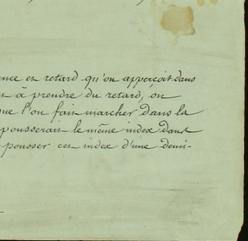 ence en retard qu'on apperçoit dans
à prendre du retard, on
que l'on fait marcher dans la
pousseran le même index dans
pousser cet index d'une demi-